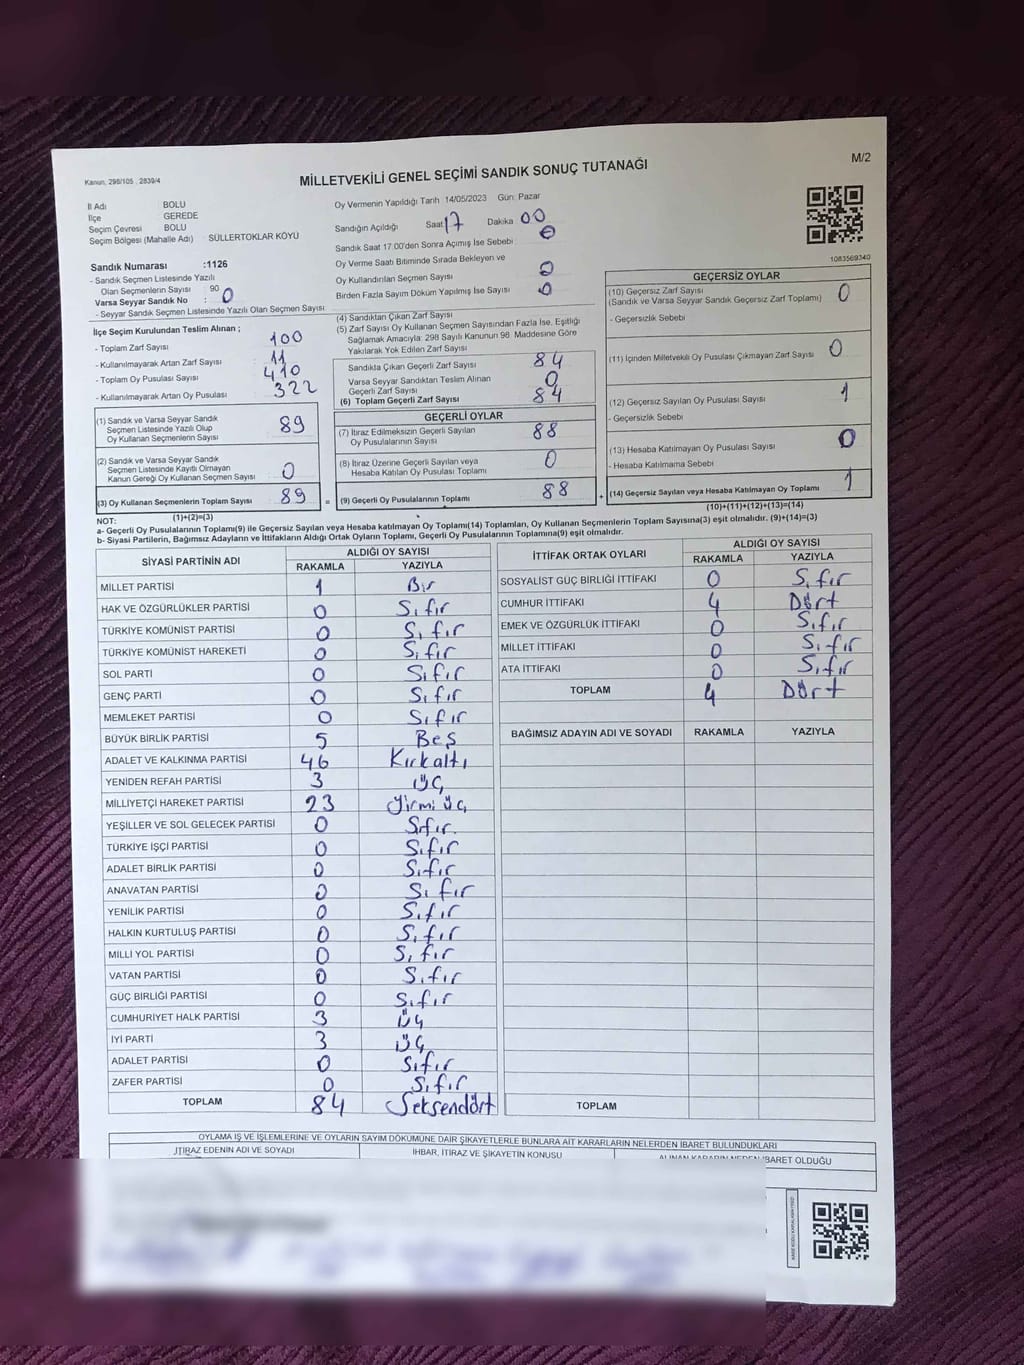 Kanun, 298/105 , 2839/4
MİLLETVEKİLİ GENEL SEÇİMİ SANDIK SONUÇ TUTANAĞI
M/2
İl Adı BOLU
İlçe GEREDE
Seçim Çevresi BOLU
Seçim Bölgesi (Mahalle Adı) SÜLLERTOKLAR KÖYÜ
Sandık Numarası :1126
- Sandık Seçmen Listesinde Yazılı
Olan Seçmenlerin Sayısı 90
Varsa Seyyar Sandık No : 0
- Seyyar Sandık Seçmen Listesinde Yazılı Olan Seçmen Sayısı
İlçe Seçim Kurulundan Teslim Alınan ;
- Toplam Zarf Sayısı 100
- Kullanılmayarak Artan Zarf Sayısı 11
- Toplam Oy Pusulası Sayısı 410
- Kullanılmayarak Artan Oy Pusulası 322
(1) Sandık ve Varsa Seyyar Sandık
Seçmen Listesinde Yazılı Olup
Oy Kullanan Seçmenlerin Sayısı 89
(2) Sandık ve Varsa Seyyar Sandık
Seçmen Listesinde Kayıtlı Olmayan
Kanun Gereği Oy Kullanan Seçmen Sayısı 0
(3) Oy Kullanan Seçmenlerin Toplam Sayısı 89 =
(1)+(2)=(3)
Oy Vermenin Yapıldığı Tarih 14/05/2023 Gün: Pazar
Sandığın Açıldığı Saat 17 Dakika 00
Sandık Saat 17:00'den Sonra Açımış İse Sebebi 0
Oy Verme Saati Bitiminde Sırada Bekleyen ve
Oy Kullandırılan Seçmen Sayısı 0
Birden Fazla Sayım Döküm Yapılmış İse Sayısı 0
(4) Sandıktan Çıkan Zarf Sayısı
(5) Zarf Sayısı Oy Kullanan Seçmen Sayısından Fazla İse, Eşitliği
Sağlamak Amacıyla; 298 Sayılı Kanunun 98. Maddesine Göre
Yakılarak Yok Edilen Zarf Sayısı
Sandıkta Çıkan Geçerli Zarf Sayısı 84
Varsa Seyyar Sandıktan Teslim Alınan
Geçerli Zarf Sayısı 0
(6) Toplam Geçerli Zarf Sayısı 84
GEÇERLİ OYLAR
(7) İtiraz Edilmeksizin Geçerli Sayılan
Oy Pusulalarının Sayısı 88
(8) İtiraz Üzerine Geçerli Sayılan veya
Hesaba Katılan Oy Pusulası Toplamı 0
(9) Geçerli Oy Pusulalarının Toplamı 88 +
1083569340
GEÇERSİZ OYLAR
(10) Geçersiz Zarf Sayısı
(Sandık ve Varsa Seyyar Sandık Geçersiz Zarf Toplamı) 0
- Geçersizlik Sebebi
(11) İçinden Milletvekili Oy Pusulası Çıkmayan Zarf Sayısı 0
(12) Geçersiz Sayılan Oy Pusulası Sayısı 1
- Geçersizlik Sebebi
(13) Hesaba Katılmayan Oy Pusulası Sayısı 0
- Hesaba Katılmama Sebebi
(14) Geçersiz Sayılan veya Hesaba Katılmayan Oy Toplamı 1
(10)+(11)+(12)+(13)=(14)
NOT:
a- Geçerli Oy Pusulalarının Toplamı(9) ile Geçersiz Sayılan veya Hesaba katılmayan Oy Toplamı(14) Toplamları, Oy Kullanan Seçmenlerin Toplam Sayısına(3) eşit olmalıdır. (9)+(14)=(3)
b- Siyasi Partilerin, Bağımsız Adayların ve İttifakların Aldığı Ortak Oyların Toplamı, Geçerli Oy Pusulalarının Toplamına(9) eşit olmalıdır.
SİYASİ PARTİNİN ADI ALDIĞI OY SAYISI
RAKAMLA YAZIYLA
MİLLET PARTİSİ 1 Bir
HAK VE ÖZGÜRLÜKLER PARTİSİ 0 Sıfır
TÜRKİYE KOMÜNİST PARTİSİ 0 Sıfır
TÜRKİYE KOMÜNİST HAREKETİ 0 Sıfır
SOL PARTİ 0 Sıfır
GENÇ PARTİ 0 Sıfır
MEMLEKET PARTİSİ 0 Sıfır
BÜYÜK BİRLİK PARTİSİ 5 Beş
ADALET VE KALKINMA PARTİSİ 46 Kırkaltı
YENİDEN REFAH PARTİSİ 3 Üç
MİLLİYETÇİ HAREKET PARTİSİ 23 Yirmi üç
YEŞİLLER VE SOL GELECEK PARTİSİ 0 Sıfır.
TÜRKİYE İŞÇİ PARTİSİ 0 Sıfır
ADALET BİRLİK PARTİSİ 0 Sıfır
ANAVATAN PARTİSİ 0 Sıfır
YENİLİK PARTİSİ 0 Sıfır
HALKIN KURTULUŞ PARTİSİ 0 Sıfır
MİLLİ YOL PARTİSİ 0 Sıfır
VATAN PARTİSİ 0 Sıfır
GÜÇ BİRLİĞİ PARTİSİ 0 Sıfır
CUMHURİYET HALK PARTİSİ 3 Üç
İYİ PARTİ 3 Üç
ADALET PARTİSİ 0 Sıfır
ZAFER PARTİSİ 0 Sıfır
TOPLAM 84 Seksendört
İTTİFAK ORTAK OYLARI ALDIĞI OY SAYISI
RAKAMLA YAZIYLA
SOSYALİST GÜÇ BİRLİĞİ İTTİFAKI 0 Sıfır
CUMHUR İTTİFAKI 4 Dört
EMEK VE ÖZGÜRLÜK İTTİFAKI 0 Sıfır
MİLLET İTTİFAKI 0 Sıfır
ATA İTTİFAKI 0 Sıfır
TOPLAM 4 Dört
BAĞIMSIZ ADAYIN ADI VE SOYADI RAKAMLA YAZIYLA
TOPLAM
OYLAMA İŞ VE İŞLEMLERİNE VE OYLARIN SAYIM DÖKÜMÜNE DAİR ŞİKAYETLERLE BUNLARA AİT KARARLARIN NELERDEN İBARET BULUNDUKLARI
İTİRAZ EDENİN ADI VE SOYADI İHBAR, İTİRAZ VE ŞİKAYETİN KONUSU ALINAN KARARIN NEDEN İBARET OLDUĞU